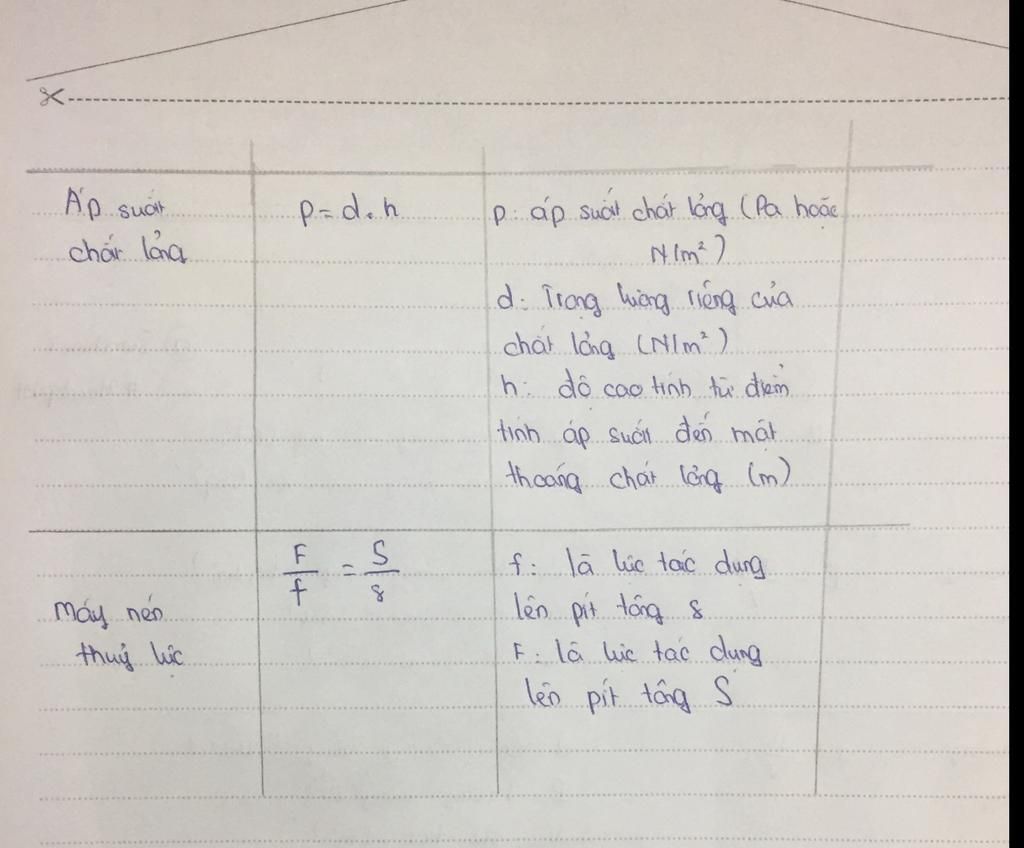 Áp suất
chất lỏng
p = d.h
p: áp suất chất lỏng (Pa hoặc
N/m²)
d: Trọng lượng riêng của
chất lỏng (N/m²)
h: độ cao tính từ điểm
tính áp suất đến mặt
thoáng chất lỏng (m)
Máy nén
thuỷ lực
F/f = S/s
f: là lực tác dụng
lên pít tông s
F: là lực tác dụng
lên pít tông S